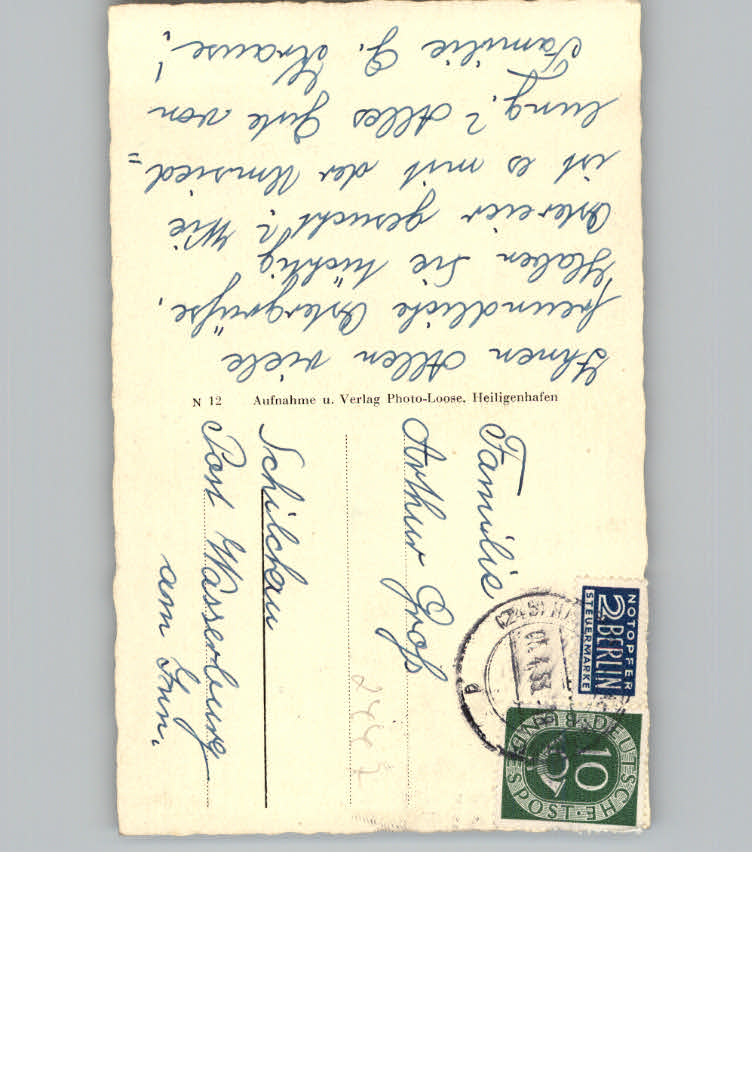 Ihnen Allen viele
freundliche Ostergrüße.
Haben Sie tüchtig
Ostereier gesucht? Wie
ist es mit der Umsied=
lung? Alles Gute von
Familie G. Krause!
N 12 Aufnahme u. Verlag Photo-Loose, Heiligenhafen
Familie
Arthur Groß
Schilchau
Post Wasserburg
am Inn.
NOTOPFER
2 BERLIN
STEUERMARKE
DEUTSCHE BUNDESPOST
10